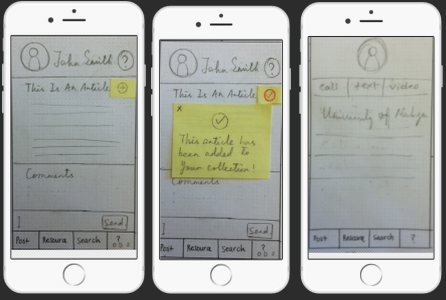 John Smith ?
This Is An Article
Comments
Send
Post
Search
?
John Smith ?
This Is An Article
x
This article has
been added to
your collection!
Comments
Send
Post
Search
?
call text video
University of
Post
Search
?